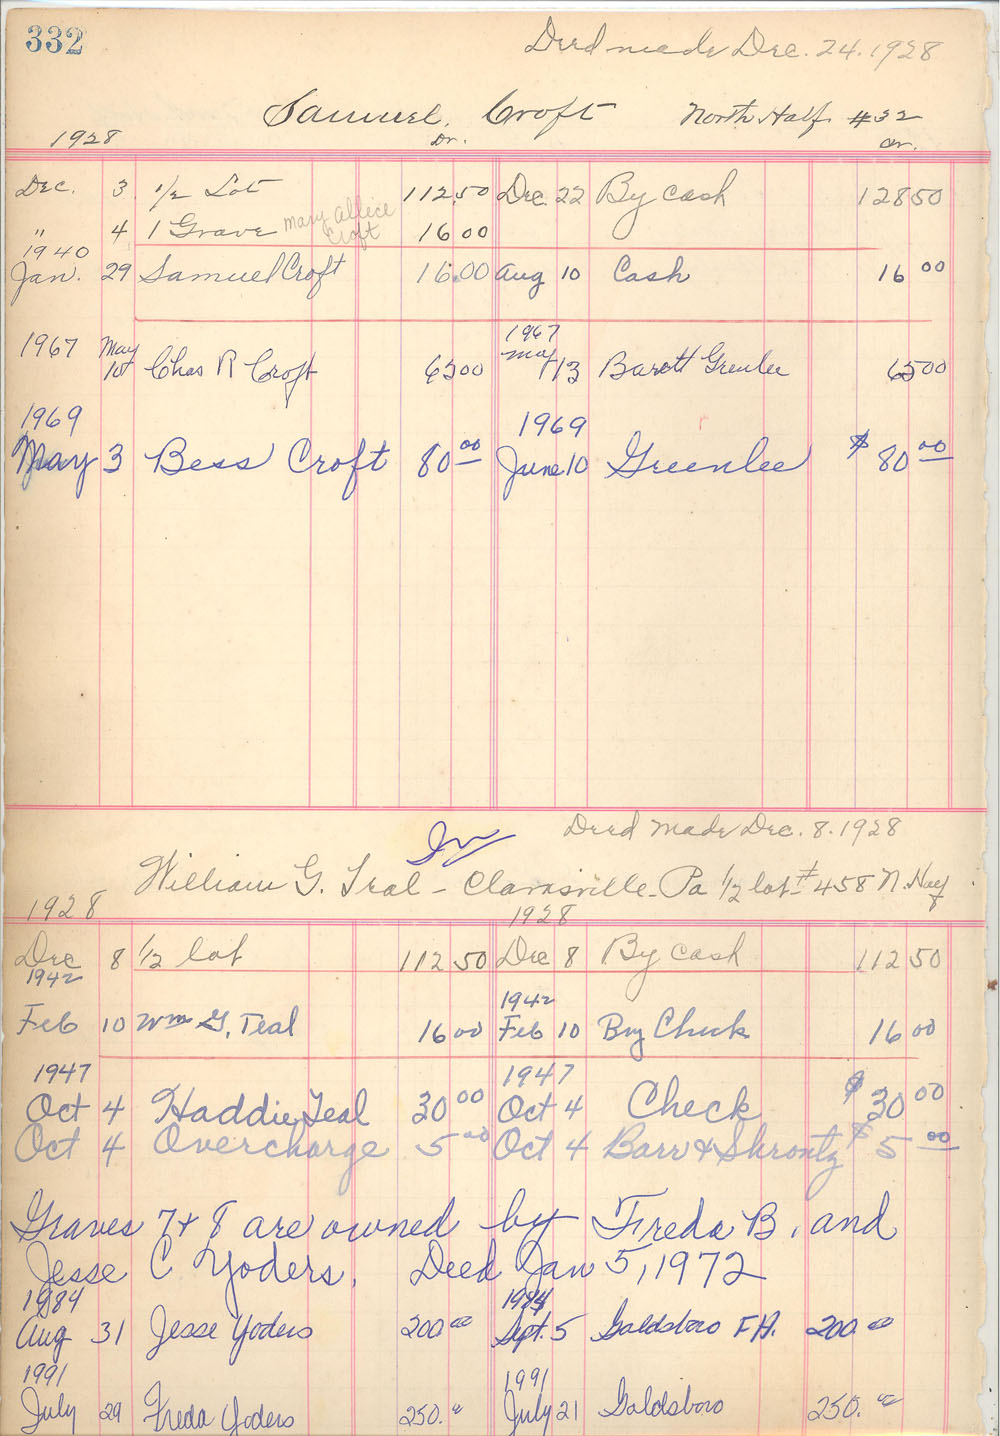 332
Deed made Dec. 24. 1928
Samuel. Croft North Half #32
1928 Dr. Cr.
Dec. 3 1/2 Lot 112.50 Dec. 22 By cash 128 50
" 4 1 Grave Mary Allice Croft 16 00
1940
Jan. 29 Samuel Croft 16.00 Aug 10 Cash 16 00
1967 1967
May 10 Chas R Croft 65 00 May 13 Barett Greenlee 65 00
1969 1969
May 3 Bess Croft 80 00 June 10 Greenlee $ 80 00
Deed made Dec. 8. 1928
William G. Teal - Clarksville Pa 1/2 lot #458 N. Half
1928 1928
Dec 8 1/2 lot 112 50 Dec 8 By cash 112 50
1942 1942
Feb 10 Wm G. Teal 16 00 Feb 10 By Check 16 00
1947 1947
Oct 4 Haddie Teal 30 00 Oct 4 Check $ 30 00
Oct 4 Overcharge 5 00 Oct 4 Barr & Shrontz $ 5 00
Graves 7 + 8 are owned by Freda B. and
Jesse C Yoders. Deed Jan 5, 1972
1984 1984
Aug 31 Jesse Yoders 200 00 Sept. 5 Goldsboro F.H. 200. 00
1991 1991
July 29 Freda Yoders 250. 00 July 21 Goldsboro 250. 00